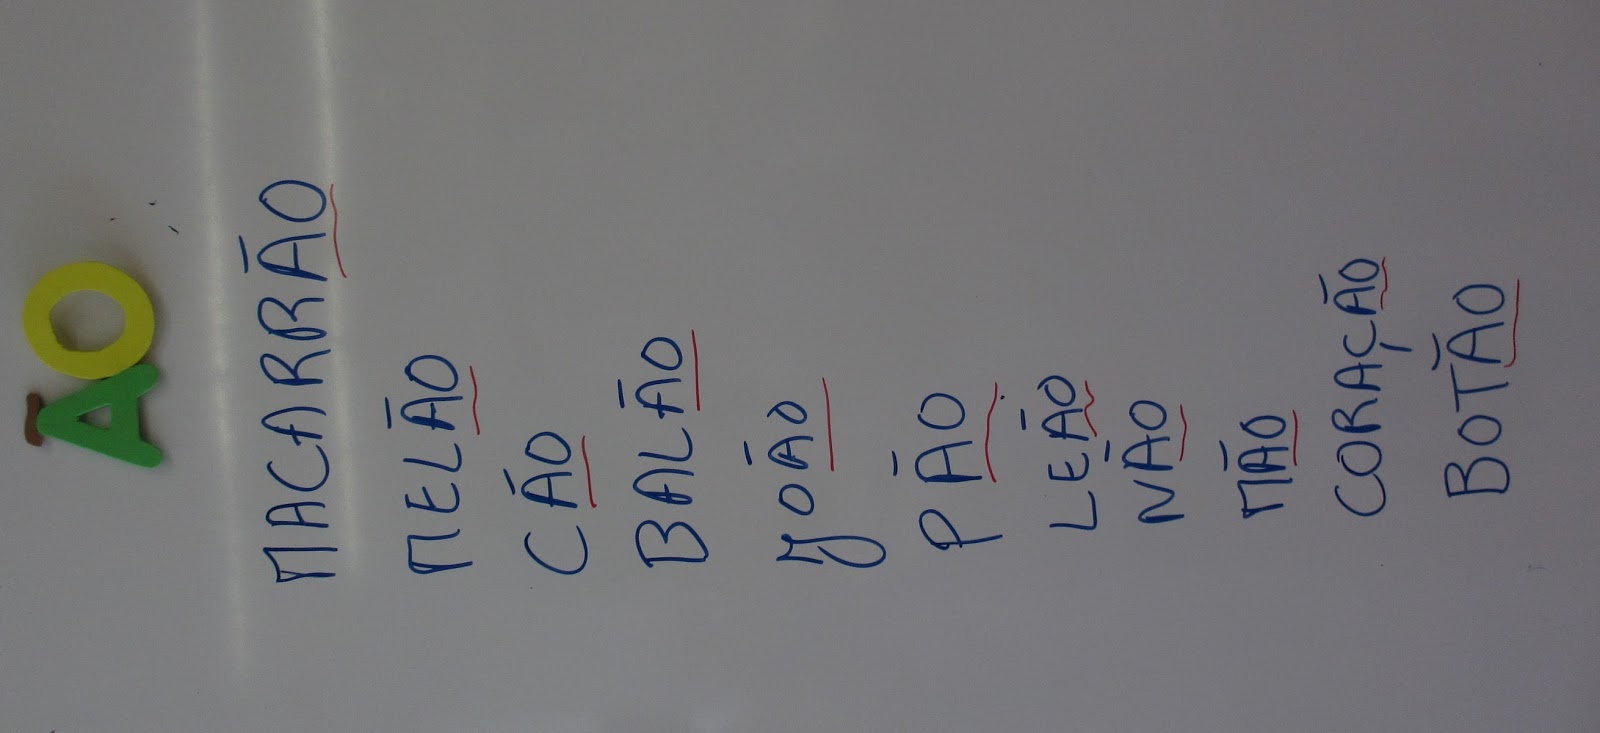 ÃO
MACARRÃO
MELÃO
CÃO
BALÃO
JOÃO
PÃO
LEÃO
NÃO
MÃO
CORAÇÃO
BOTÃO